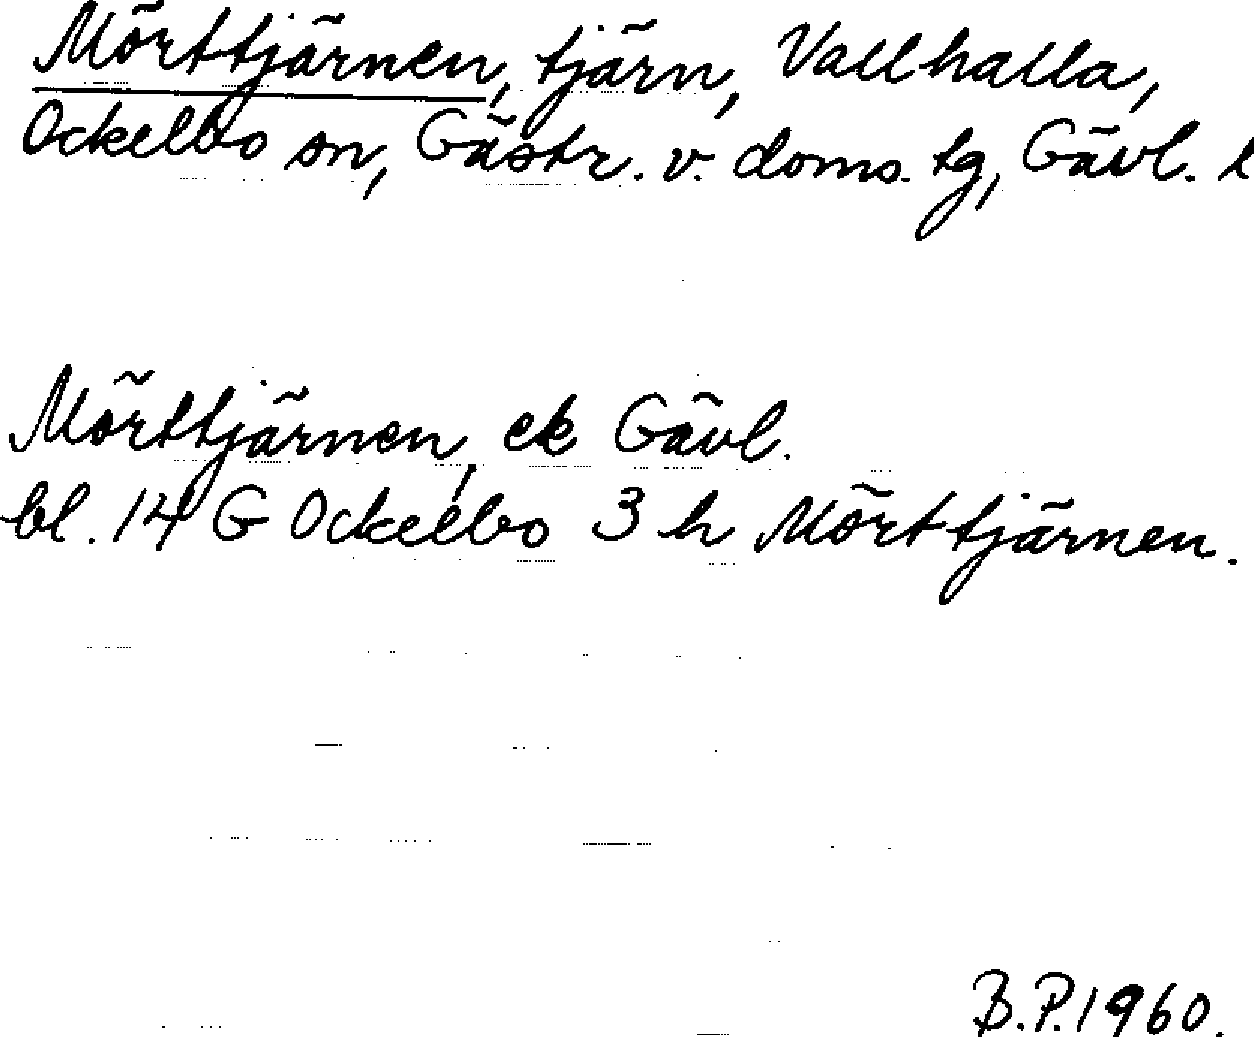 Mörttjärnen, tjärn, Vallhalla,
Ockelbo sn, Gästr. v. doms. tg, Gävl. l
Mörttjärnen, ek Gävl.
bl. 14 G Ockelbo 3 h Mörttjärnen.
B.P. 1960.